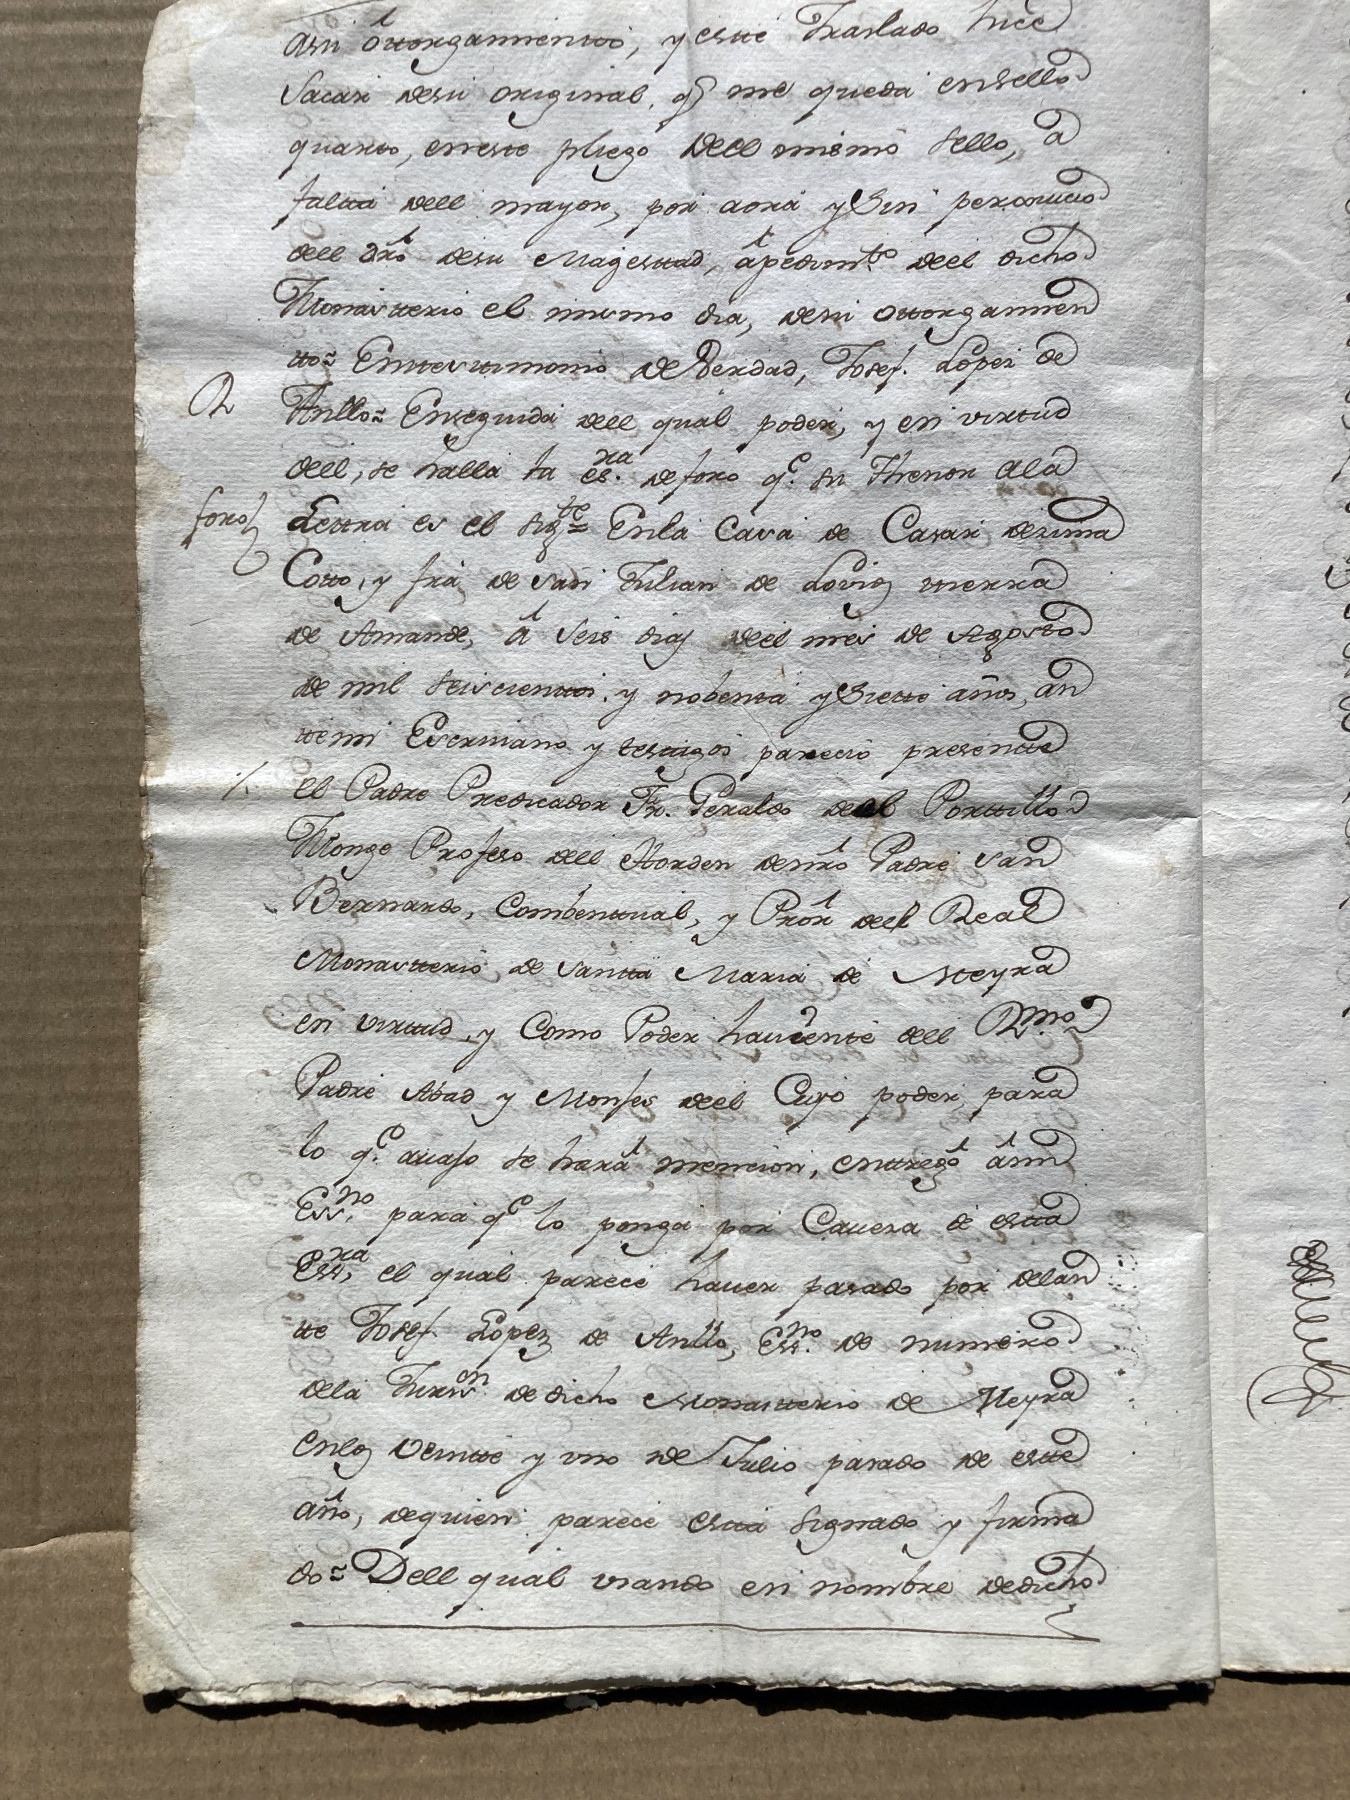 asu ottorgamientto, y este Traslado hice
Sacar desu original, q̃ me queda ensello
quarto, eneste pliego dell mismo sello, a
faltta dell mayor, por aora y Sin perxuicio
dell dr̃o desu Magesttad, ápedimto. deel dicho
Monastterio el mismo dia, desu ottorgamien
tto= Enttesttimonio de Verdad, Josef. Lopez de
Anllo= Enseguida dell qual poder, y en virtud
dell, se halla la es.ra de foro q.e su Thenor ala
foros
Lettra es el sigte= Enla Casa de Casar dezima
Cotto, y frã de San Julian de
de Amande, â Seis dias deel mes de Agosto
de mil seiscienttos. y nobenta y Siette años, an
ttemi Escrivano y testtigos parecio presentte
el Padre Predicador Fr. Geraldo deel Porttillo
Monge Profeso dell Horden denr̃o Padre San
Bernardo, Combenttual, y Pror̃ deel Real
Monastterio de Santta Maria de Meyra
en virttud, y Como Poder haviente dell Rmo.
Padre Abad y Monjes deel Cuyo poder, para
lo q.e avajo se hará mencion, enttregó ámi
Ess.no para q.e lo ponga por Caveza de estta
Ess.ra el qual parece haver pasado por delan
tte Josef Lopez de Anllo, Ess.no de numero
dela Jurisn. dedicho Monastterio de Meyra
enlos Veintte y uno de Julio pasado de estte
año, dequien parece estta signado y firma
do= Dell qual usando en nombre dedicho